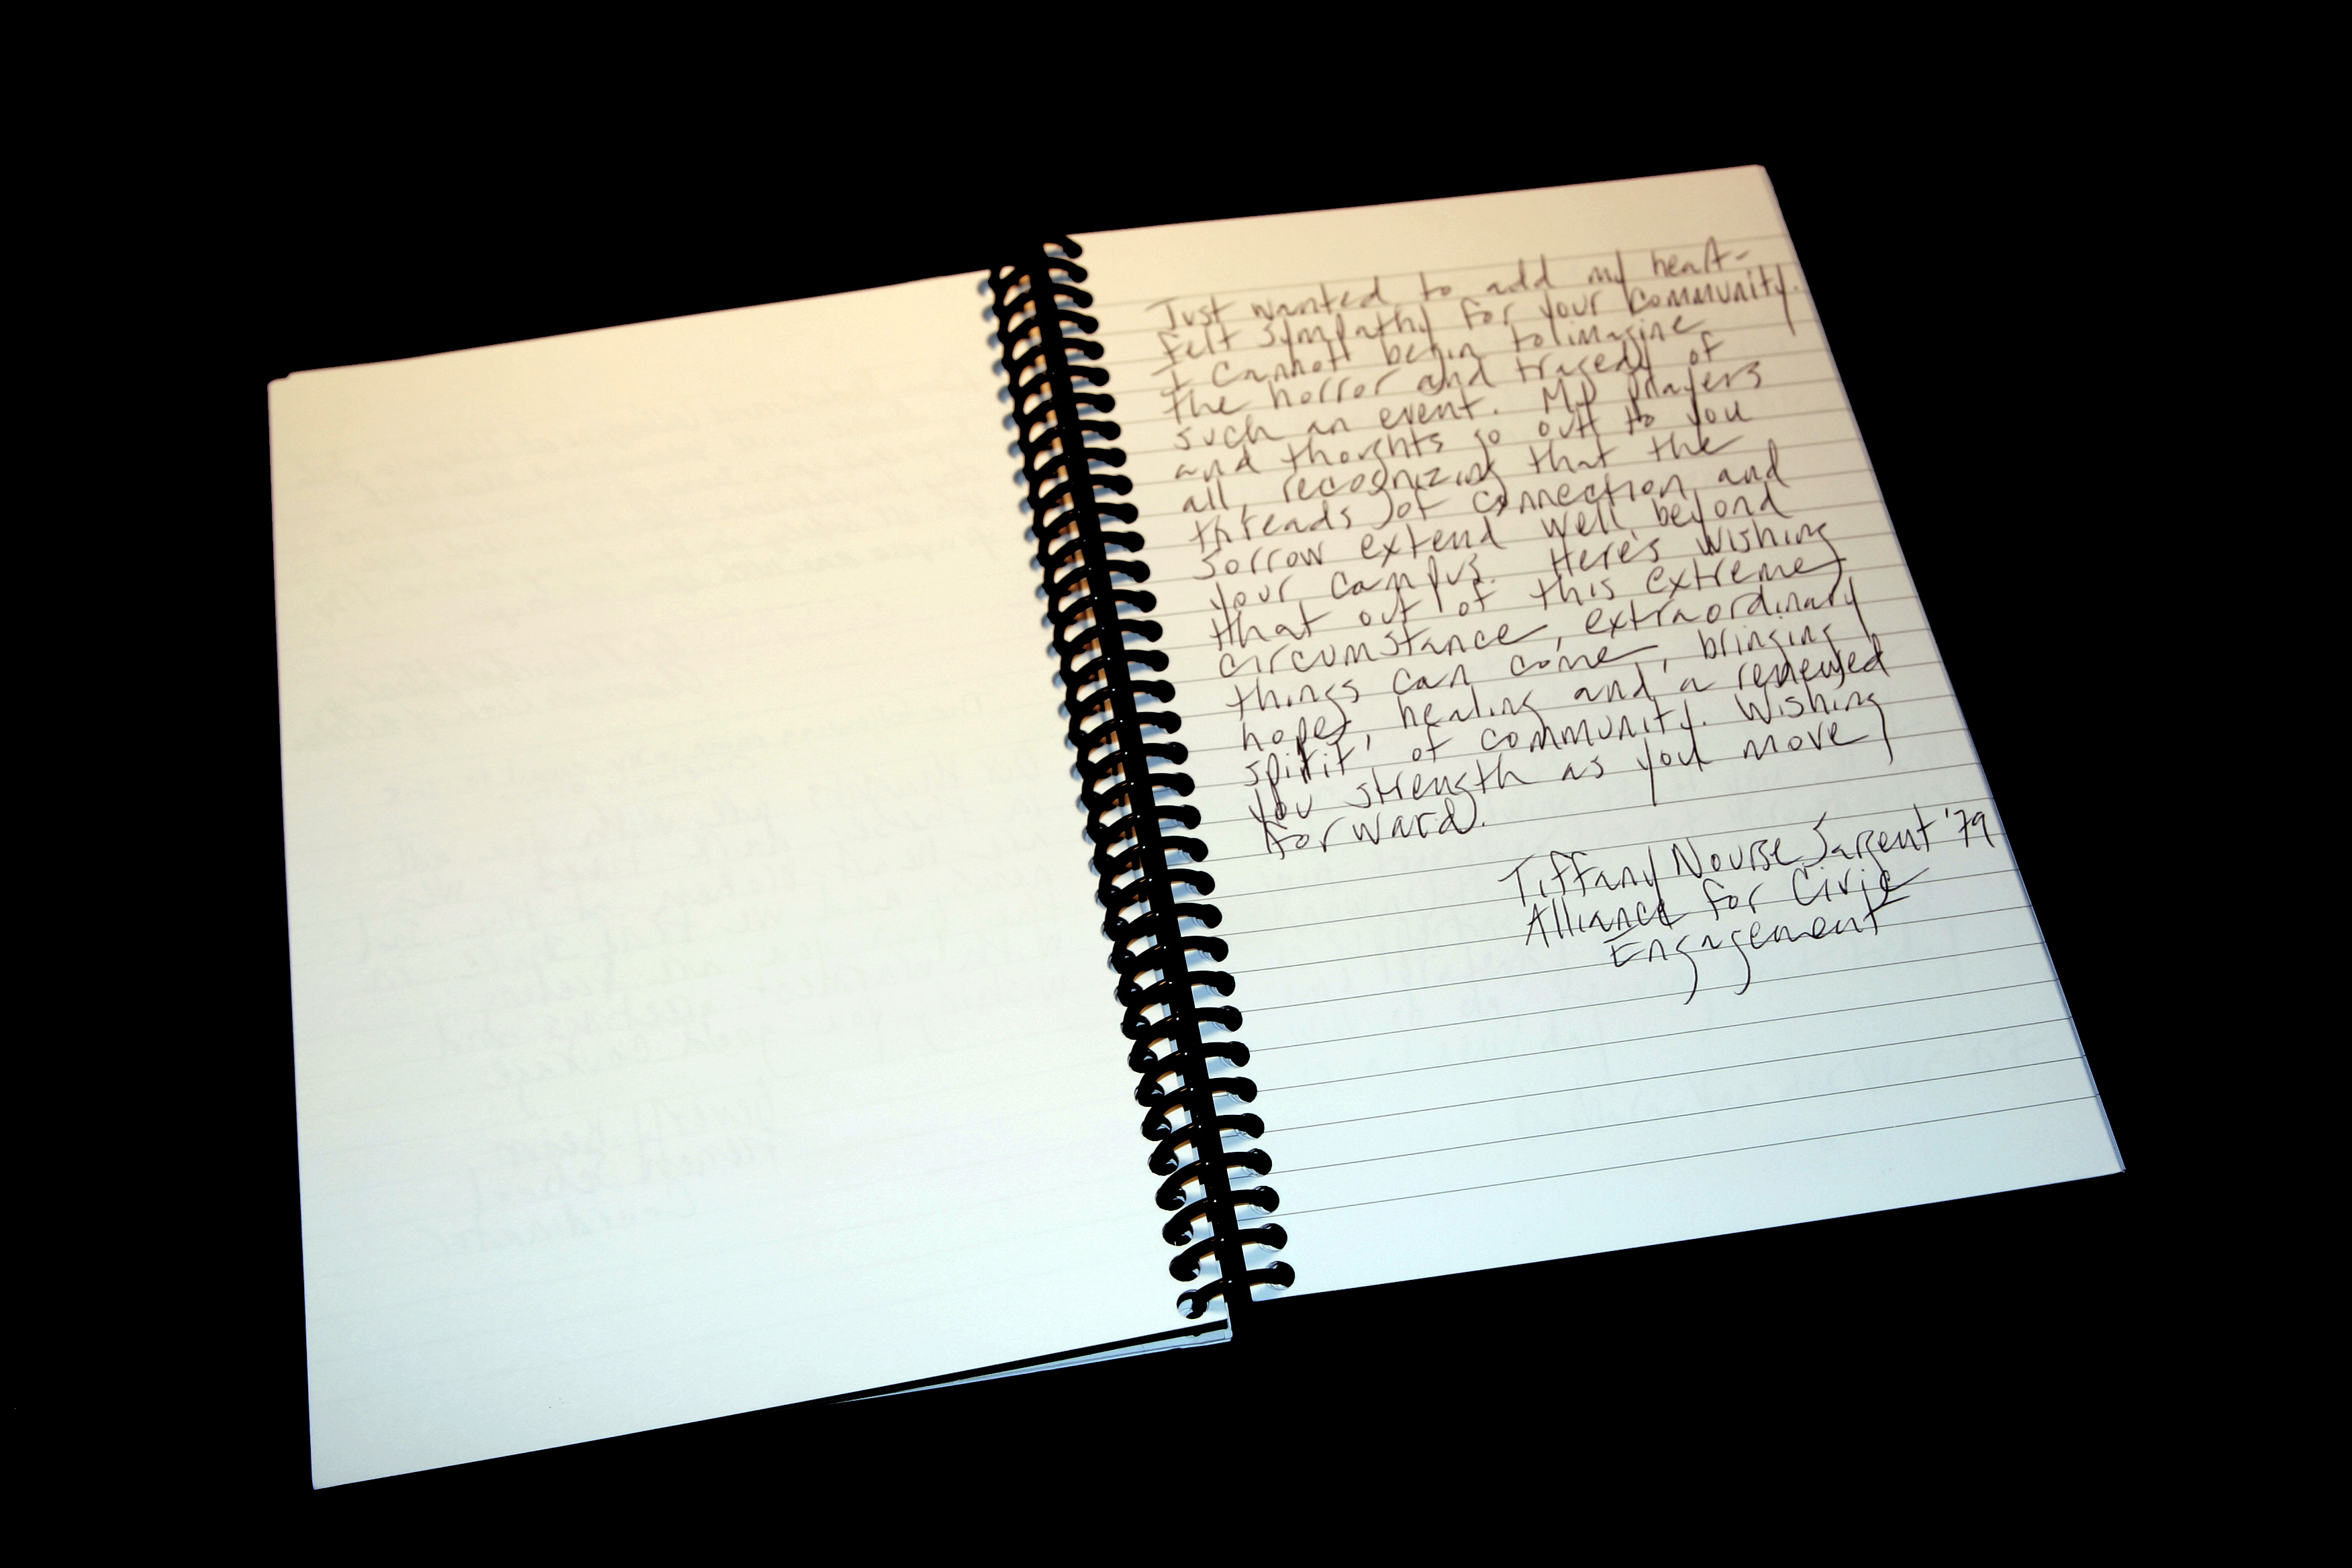 Just wanted to add my heart-
felt sympathy for your community.
I cannot begin to imagine
the horror and tragedy of
such an event. My prayers
and thoughts go out to you
all, recognizing that the
threads of connection and
sorrow extend well beyond
your campus. Here's wishing
that out of this extreme
circumstance, extraordinary
things can come, bringing
hope, healing and a renewed
spirit of community. Wishing
you strength as you move
forward.
Tiffany Nourse Sargent '79
Alliance for Civic
Engagement